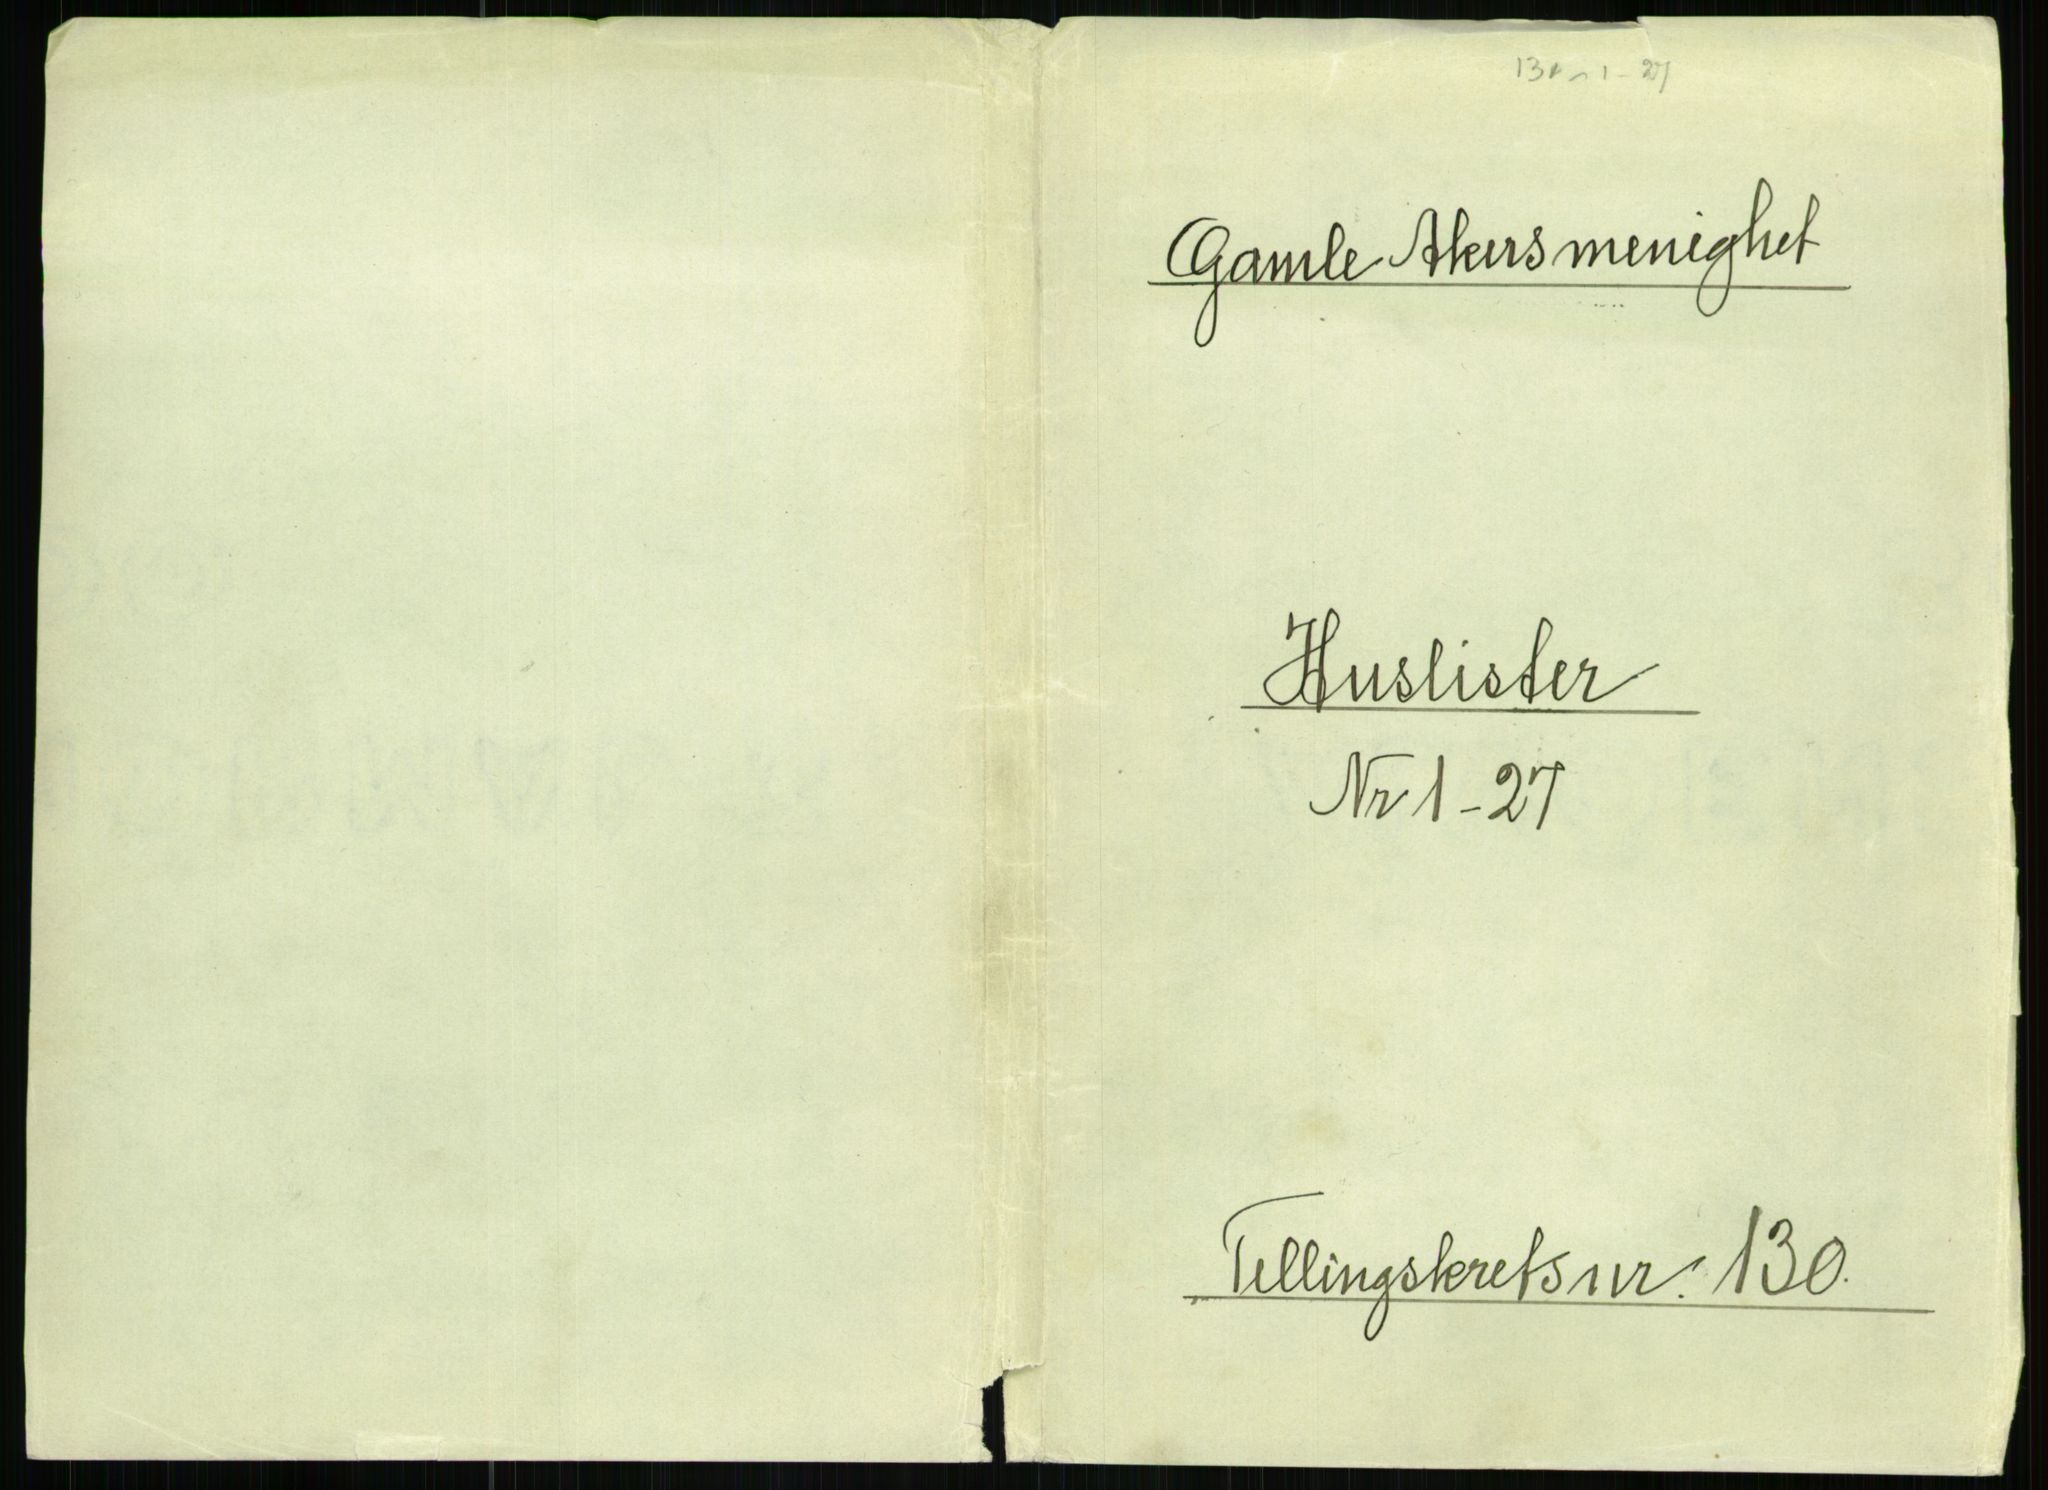 1 - 27
Gamle Akersmenighet
Huslister
Nr 1 - 27
Tellingskrets nr. 130.